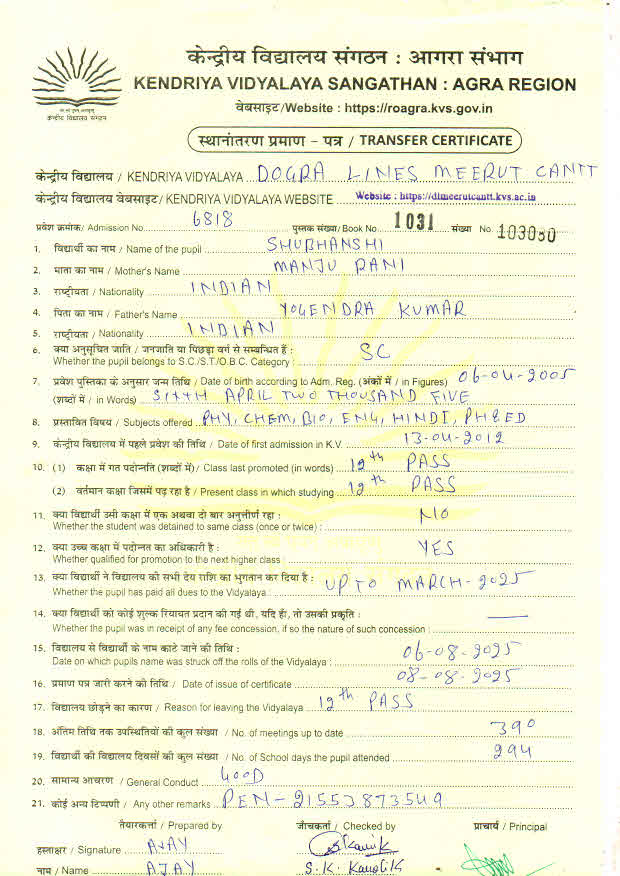 केन्द्रीय विद्यालय संगठन : आगरा संभाग
KENDRIYA VIDYALAYA SANGATHAN : AGRA REGION
केन्द्रीय विद्यालय संगठन
वेबसाइट/Website : https://roagra.kvs.gov.in
स्थानांतरण प्रमाण – पत्र / TRANSFER CERTIFICATE
केन्द्रीय विद्यालय / KENDRIYA VIDYALAYA DOGRA LINES MEERUT CANTT
केन्द्रीय विद्यालय वेबसाइट/ KENDRIYA VIDYALAYA WEBSITE Website : https://dlmeerutcantt.kvs.ac.in
प्रवेश क्रमांक/ Admission No. 6818 पुस्तक संख्या/Book No. 1031 संख्या No. 103080
1. विद्यार्थी का नाम / Name of the pupil SHUBHANSHI
2. माता का नाम / Mother's Name MANJU RANI
3. राष्ट्रीयता / Nationality INDIAN
4. पिता का नाम / Father's Name YOGENDRA KUMAR
5. राष्ट्रीयता / Nationality INDIAN
6. क्या अनुसूचित जाति / जनजाति या पिछड़ा वर्ग से सम्बन्धित हैं : SC
Whether the pupil belongs to S.C./S.T./O.B.C. Category :
7. प्रवेश पुस्तिका के अनुसार जन्म तिथि / Date of birth according to Adm. Reg. (अंकों में / in Figures) 06-04-2005
(शब्दों में / in Words) SIXTH APRIL TWO THOUSAND FIVE
8. प्रस्तावित विषय / Subjects offered PHY, CHEM, BIO, ENG, HINDI, PH&ED
9. केन्द्रीय विद्यालय में पहले प्रवेश की तिथि / Date of first admission in K.V. 13-04-2012
10. (1) कक्षा में गत पदोन्नति (शब्दों में)/ Class last promoted (in words) 12th PASS
(2) वर्तमान कक्षा जिसमें पढ़ रहा है / Present class in which studying 12th PASS
11. क्या विद्यार्थी उसी कक्षा में एक अथवा दो बार अनुत्तीर्ण रहा : NO
Whether the student was detained to same class (once or twice) :
12. क्या उच्च कक्षा में पदोन्नत का अधिकारी है : YES
Whether qualified for promotion to the next higher class :
13. क्या विद्यार्थी ने विद्यालय की सभी देय राशि का भुगतान कर दिया है : UP TO MARCH-2025
Whether the pupil has paid all dues to the Vidyalaya :
14. क्या विद्यार्थी को कोई शुल्क रियायत प्रदान की गई थी, यदि हां, तो उसकी प्रकृति : —
Whether the pupil was in receipt of any fee concession, if so the nature of such concession :
15. विद्यालय से विद्यार्थी के नाम काटे जाने की तिथि : 06-08-2025
Date on which pupils name was struck off the rolls of the Vidyalaya :
16. प्रमाण पत्र जारी करने की तिथि / Date of issue of certificate 08-08-2025
17. विद्यालय छोड़ने का कारण / Reason for leaving the Vidyalaya 12th PASS
18. अंतिम तिथि तक उपस्थितियों की कुल संख्या / No. of meetings up to date 390
19. विद्यार्थी की विद्यालय दिवसों की कुल संख्या / No. of School days the pupil attended 294
20. सामान्य आचरण / General Conduct GOOD
21. कोई अन्य टिप्पणी / Any other remarks PEN-21553873549
तैयारकर्ता / Prepared by जाँचकर्ता / Checked by प्राचार्य / Principal
हस्ताक्षर / Signature AJAY
नाम / Name AJAY S.K. Kaushik